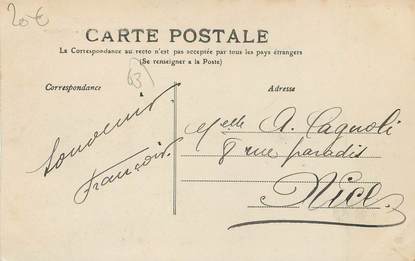 20€
CARTE POSTALE
La Correspondance au recto n'est pas acceptée par tous les pays étrangers
(Se renseigner à la Poste)
63
Correspondance
Adresse
Souvenir
François
Melle A. Cagnoli
8 rue paradis
Nice